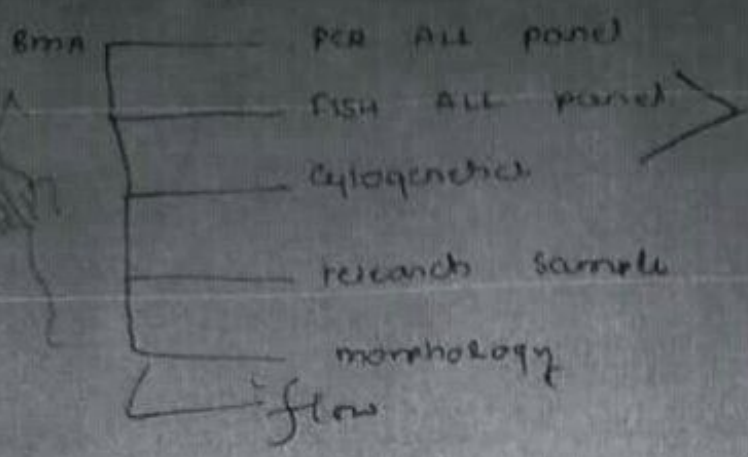 BMA PCR ALL panel
FISH ALL panel
Cytogenetics
research sample
morphology
flow